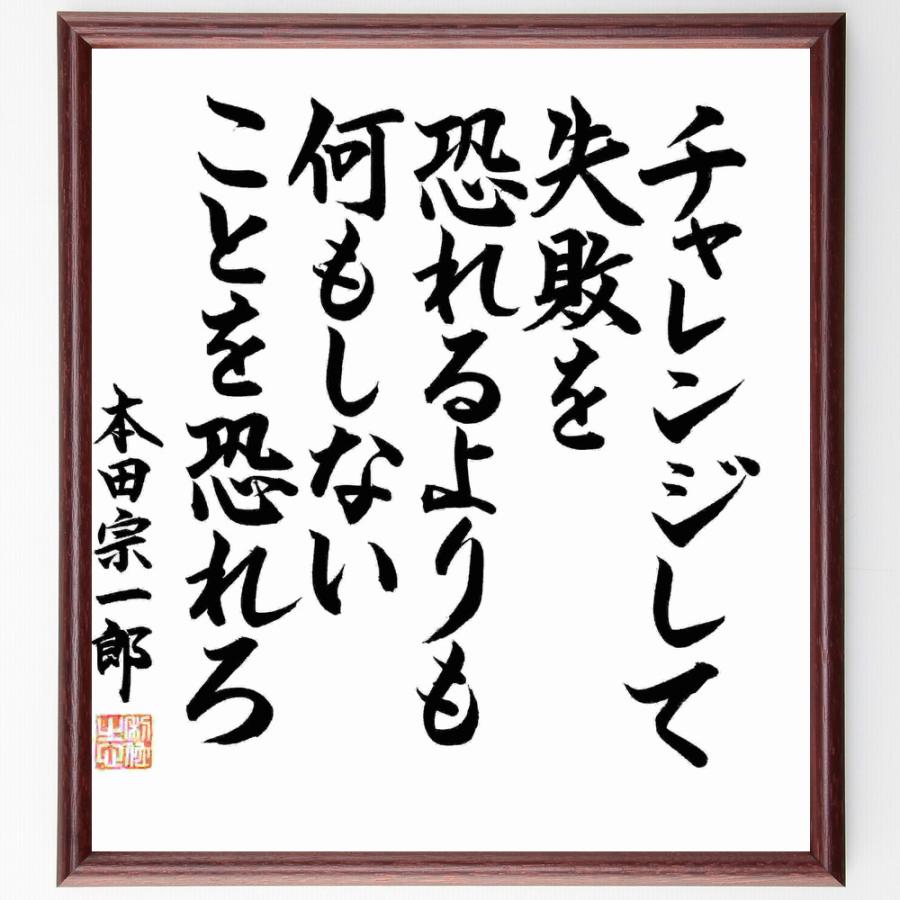 チャレンジして
失敗を
恐れるよりも
何もしない
ことを恐れろ
本田宗一郎